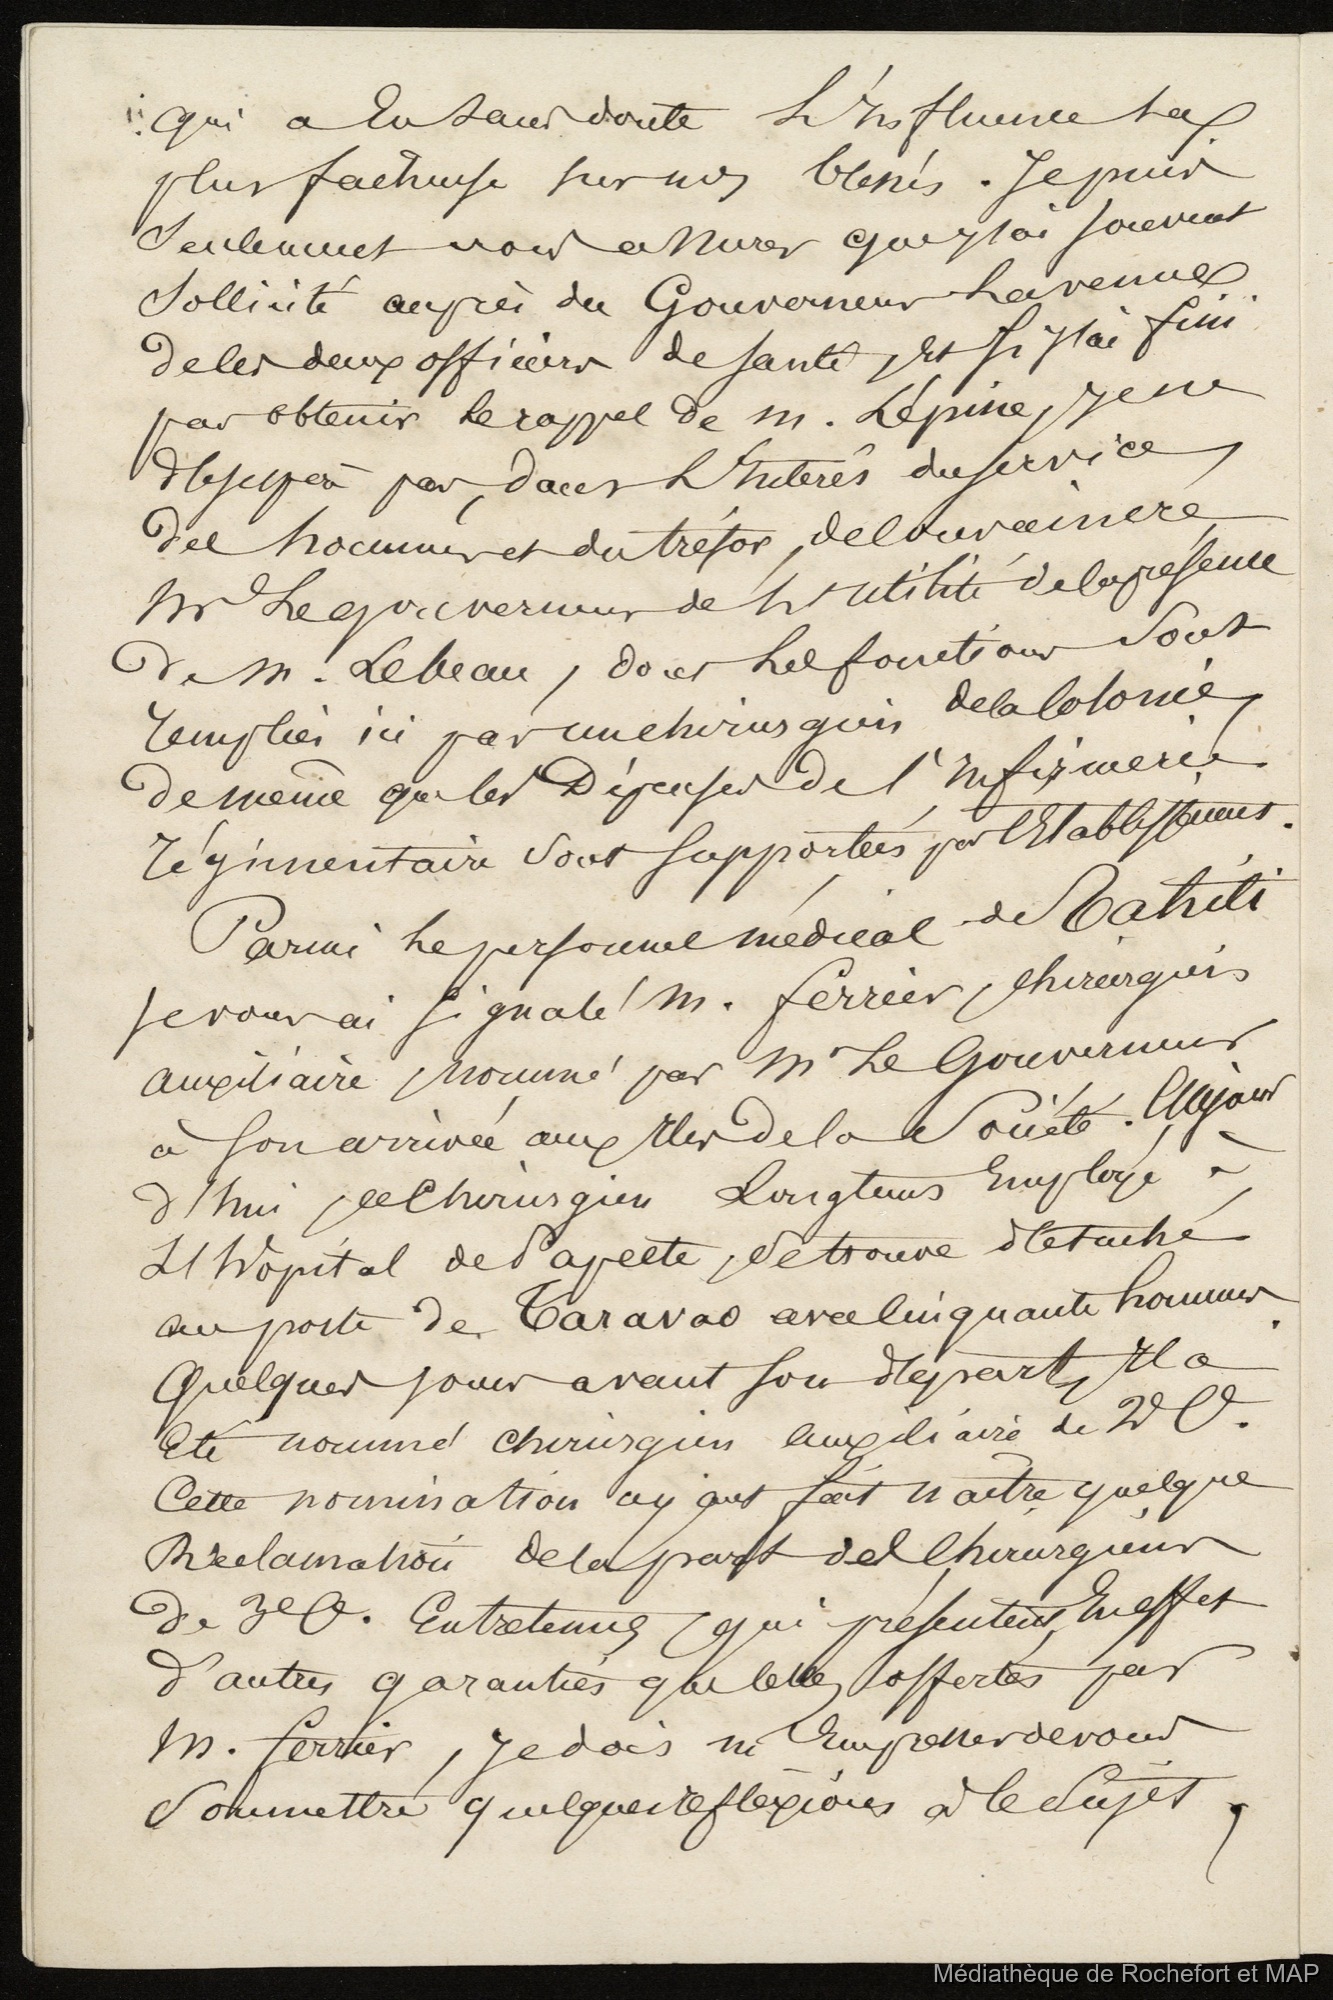 qui a Eu sans doute L'Influence La
plus facheuse sur nos blessés. Je puis
Seulement vous assurer que j'ai souvent
Sollicité auprès du Gouverneur La venue
de ces deux officiers de santé, Et Si j'ai fini
par obtenir le rappel de M. Lépine, je ne
désespère pas, dans L'Interêt du service,
des hommes et du trésor, de convaincre
Mr Le gouverneur de L'utilité de la présence
de M. Lebeau, dont les fonctions Sont
remplies ici par un chirurgien de la Colonie,
de même que les Dépenses de l'Infirmerie
régimentaire Sont supportées par l'Etablissement.
Parmi le personnel médical de Tahiti
je vous ai signalé M. ferrier, chirurgien
auxiliaire, nommé par Mr Le Gouverneur
à son arrivée aux Iles de la Société. Aujour
d'hui, ce Chirurgien Longtems Employé à
L'hôpital de Papeete, Se trouve détaché
au poste de Taravao avec Cinquante hommes.
Quelques jours avant son départ, Il a
Eté nommé chirurgien auxiliaire de 2e Cl.
Cette nomination ayant fait naître quelque
Réclamation de la part des Chirurgiens
de 3e Cl. Entretenus, qui présentent, En effet
d'autres garanties que celles offertes par
M. ferrier, je dois m'Empresser de vous
Soummettre quelques réflexions à ce Sujet,
Médiathèque de Rochefort et MAP